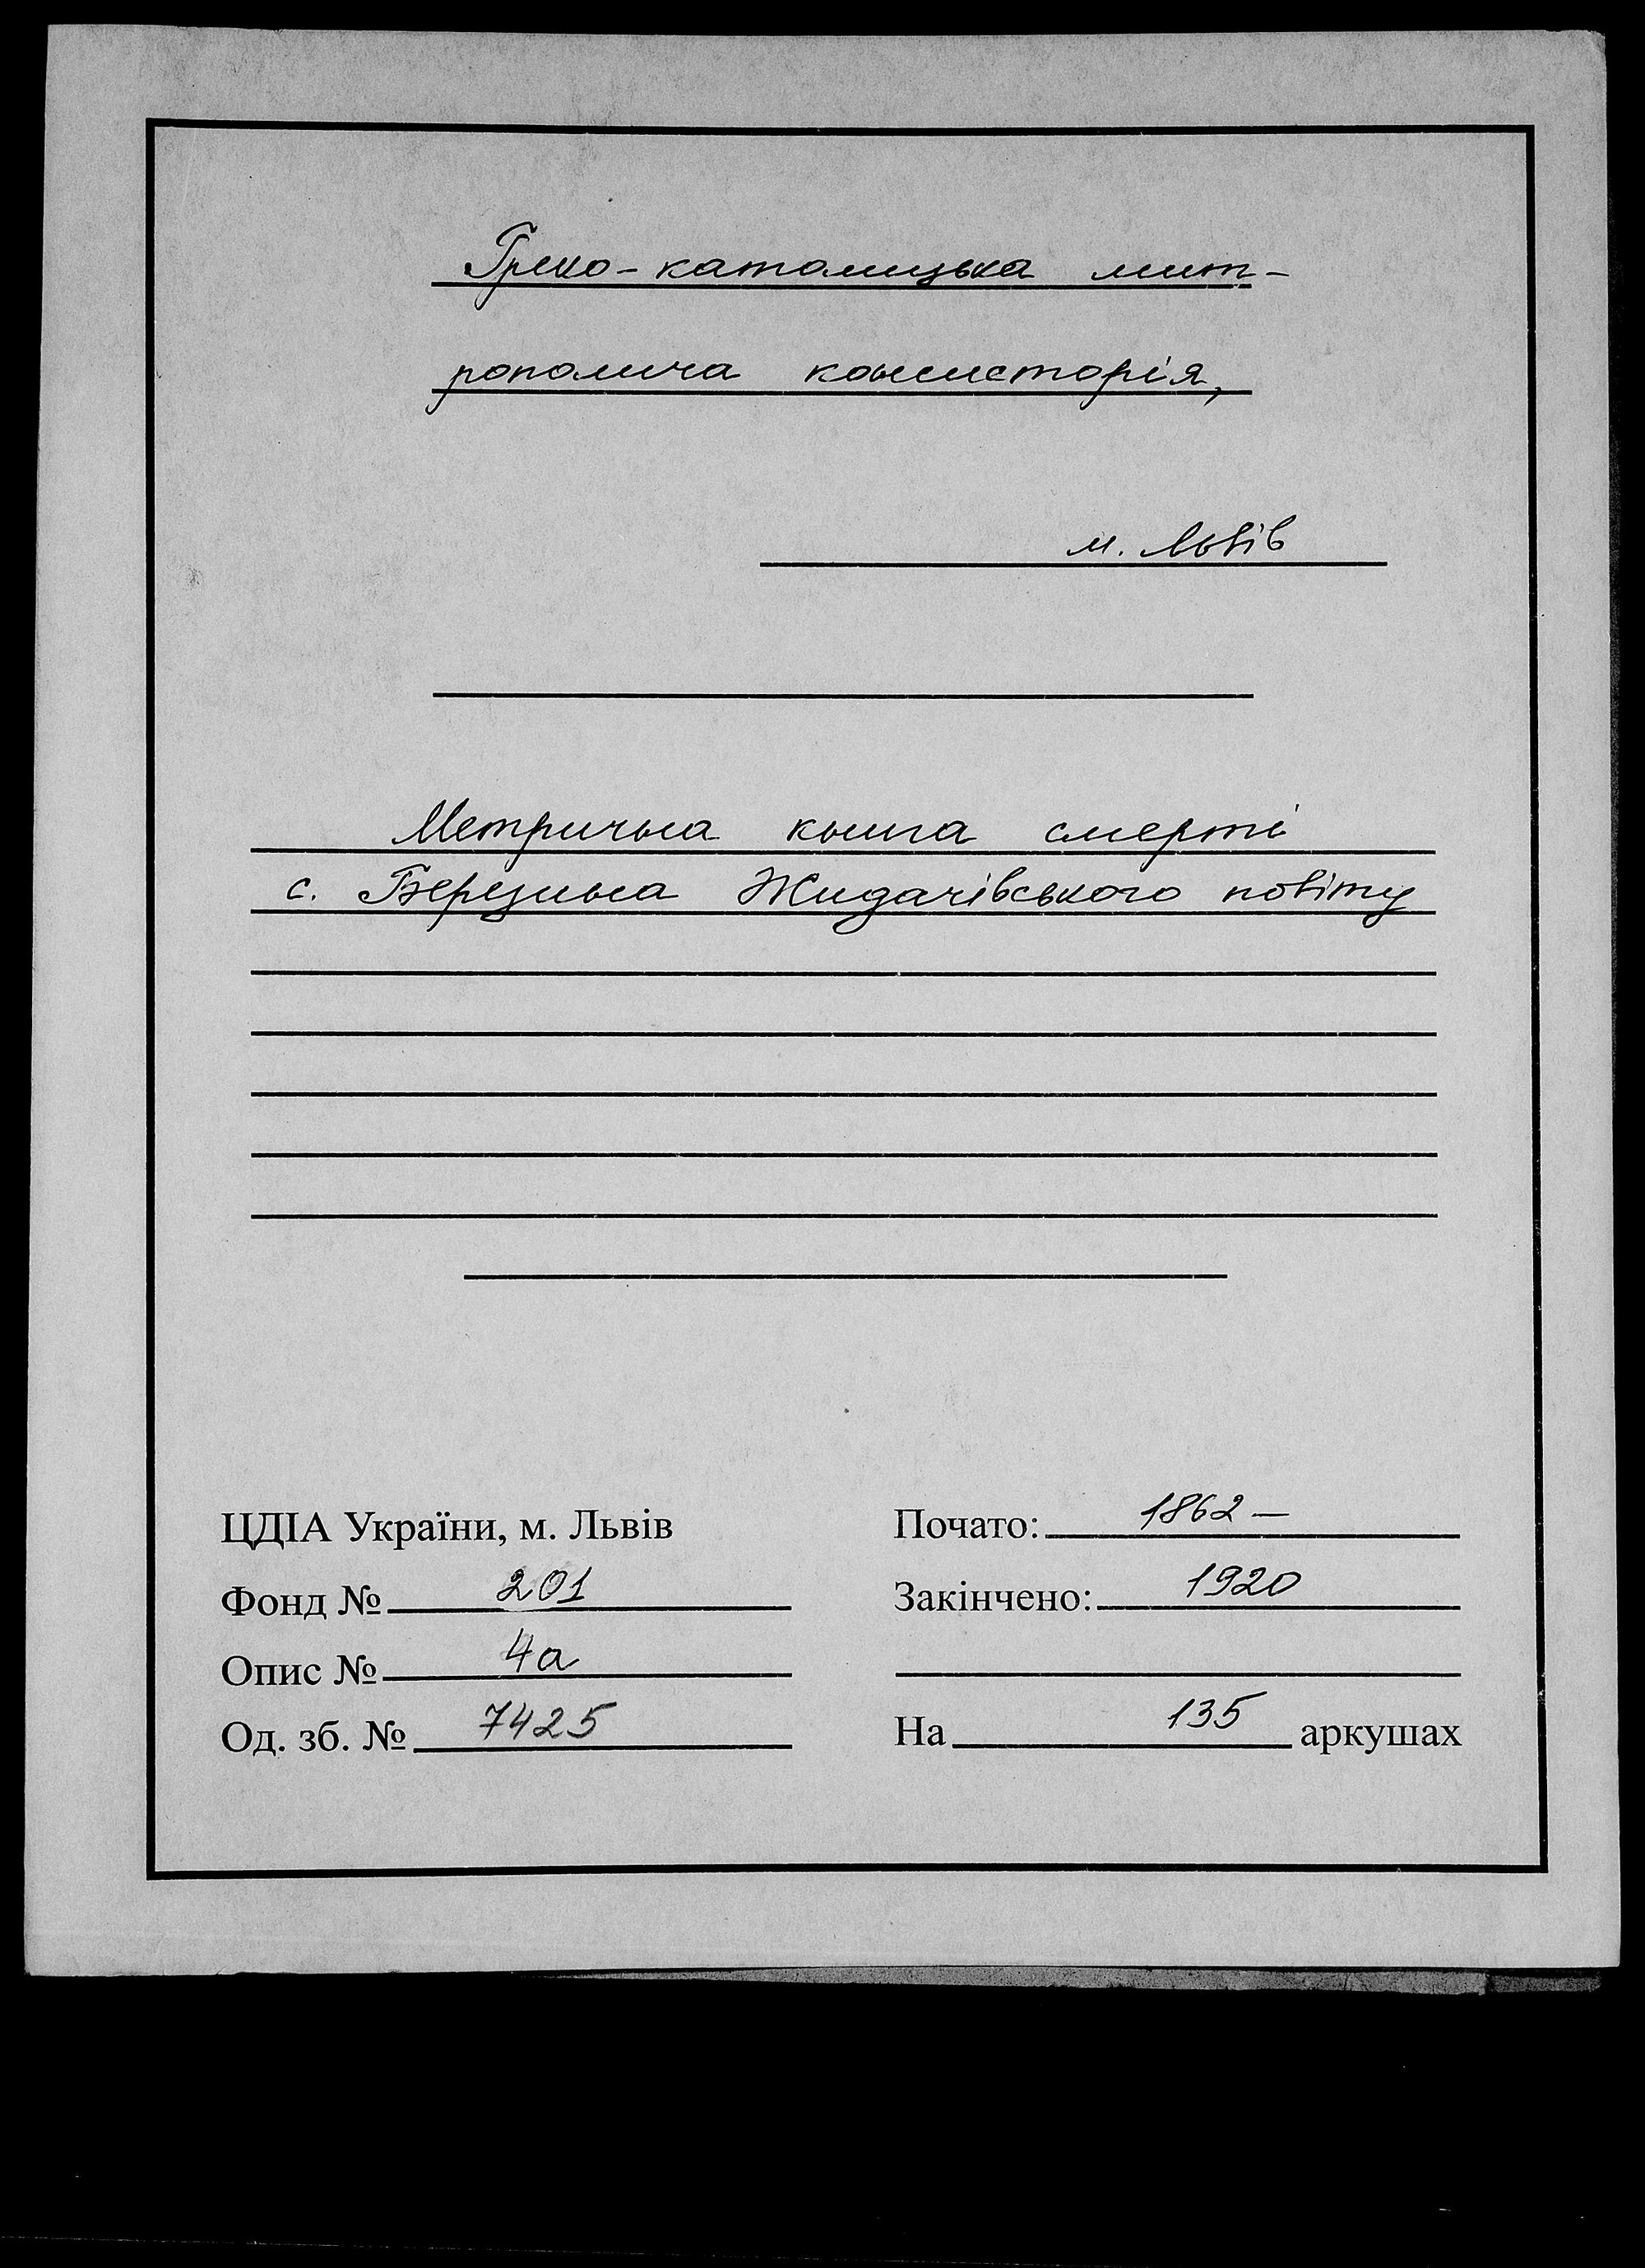 Греко-католицька мит-
рополича консисторія,
м. Львів
Метрична книга смерті
с. Березина Жидачівського повіту
ЦДІА України, м. Львів
Фонд № 201
Опис № 4а
Од. зб. № 7425
Почато: 1862 —
Закінчено: 1920
На 135 аркушах